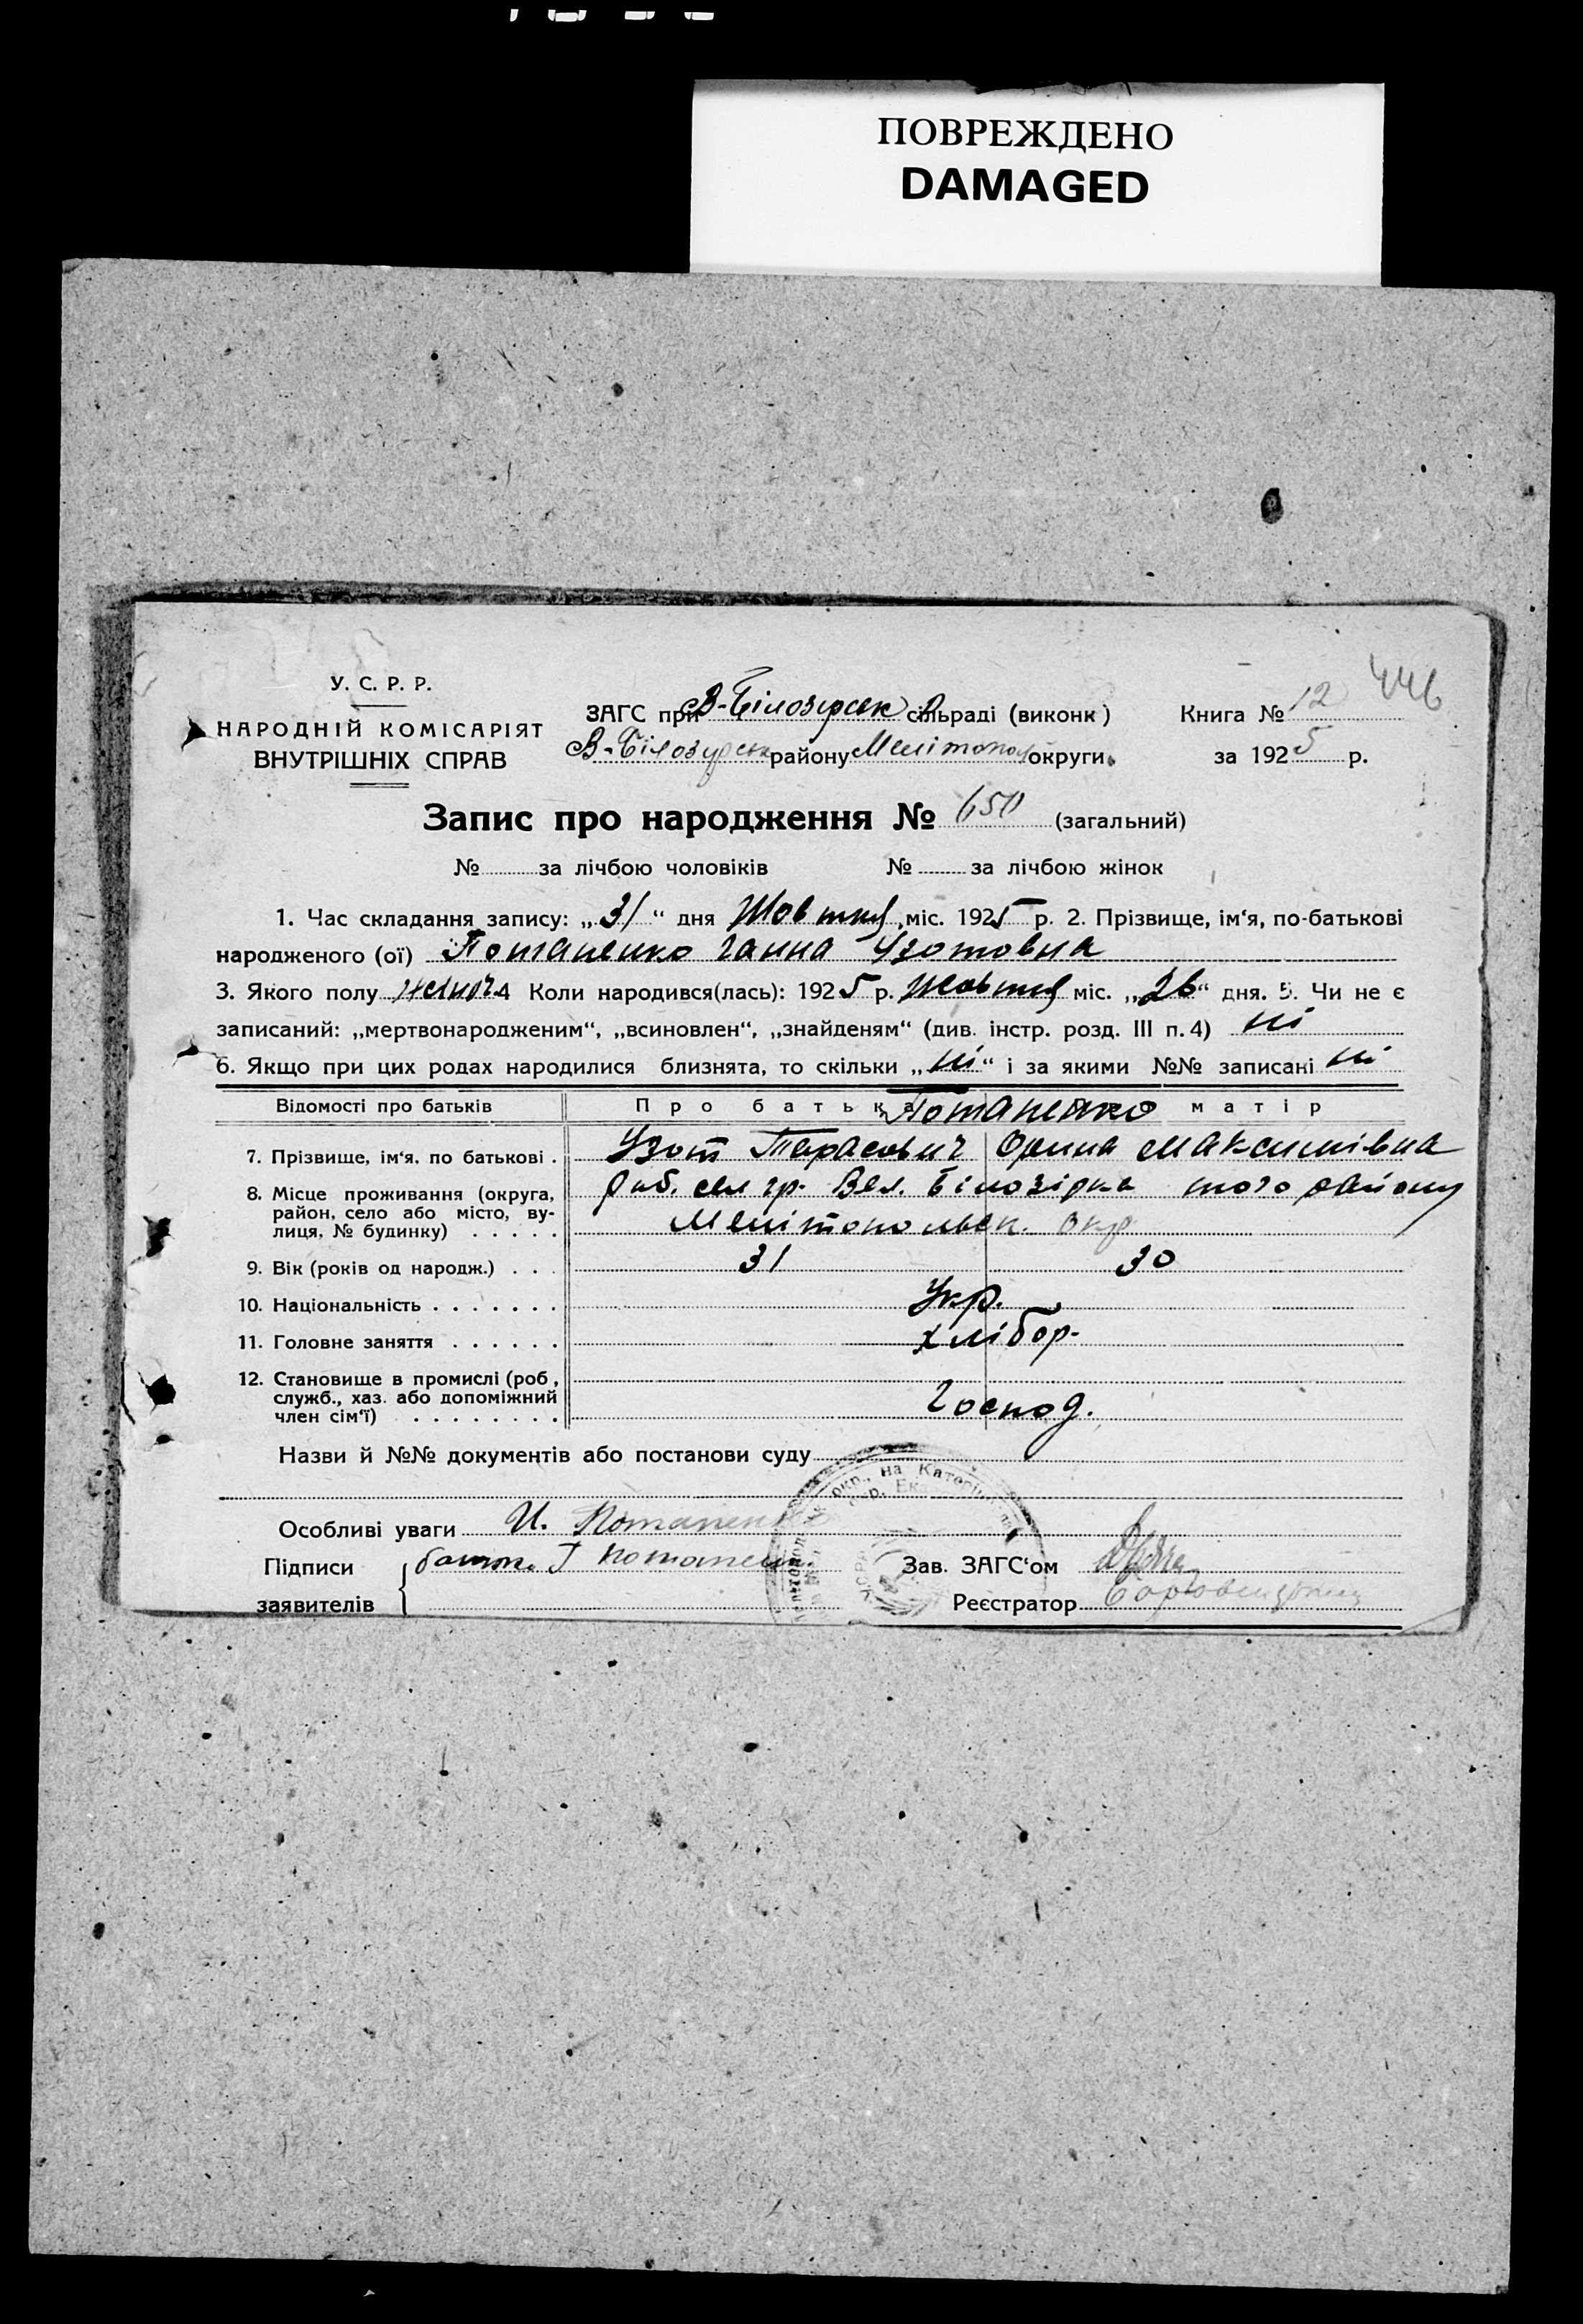 ПОВРЕЖДЕНО
DAMAGED
446
У. С. Р. Р.
НАРОДНІЙ КОМІСАРІЯТ
ВНУТРІШНІХ СПРАВ
ЗАГС при В-Білозірськ сільраді (виконк)
В-Білозірськ району Мелітопол округи.
Книга № 12
за 1925 р.
Запис про народження № 650 (загальний)
№ за лічбою чоловіків № за лічбою жінок
1. Час складання запису: „31“ дня Жовтня міс. 1925 р. 2. Прізвище, ім‘я, по-батькові
народженого (ої) Потапенко Ганна Ізотовна
3. Якого полу жіноч. 4 Коли народився(лась): 1925 р. Жовтня міс. „26“ дня. 5. Чи не є
записаний: „мертвонародженим“, „всиновлен“, „знайденям“ (див. інстр. розд. III п. 4) ні
6. Якщо при цих родах народилися близнята, то скільки „ні“ і за якими №№ записані ні
Відомості про батьків Про батька Потапенко матір
7. Прізвище, ім‘я, по батькові . Ізот Тарасович Орина Максимівна
8. Місце проживання (округа, сел гр. Вел. Білозірка того району
район, село або місто, ву-
лиця, № будинку) . . . . . Мелітопольск. окр
9. Вік (років од народж.) . . . 31 30
10. Національність . . . . . . . Укр.
11. Головне заняття . . . . . . хлібор.
12. Становище в промислі (роб.,
служб., хаз. або допоміжний
член сім‘ї) . . . . . . . . Господ.
Назви й №№ документів або постанови суду
Особливі уваги И. Потапенко
Підписи
заявителів
батьк. І Потапенк
окр., на Катерин
Зав. ЗАГС‘ом
Реєстратор